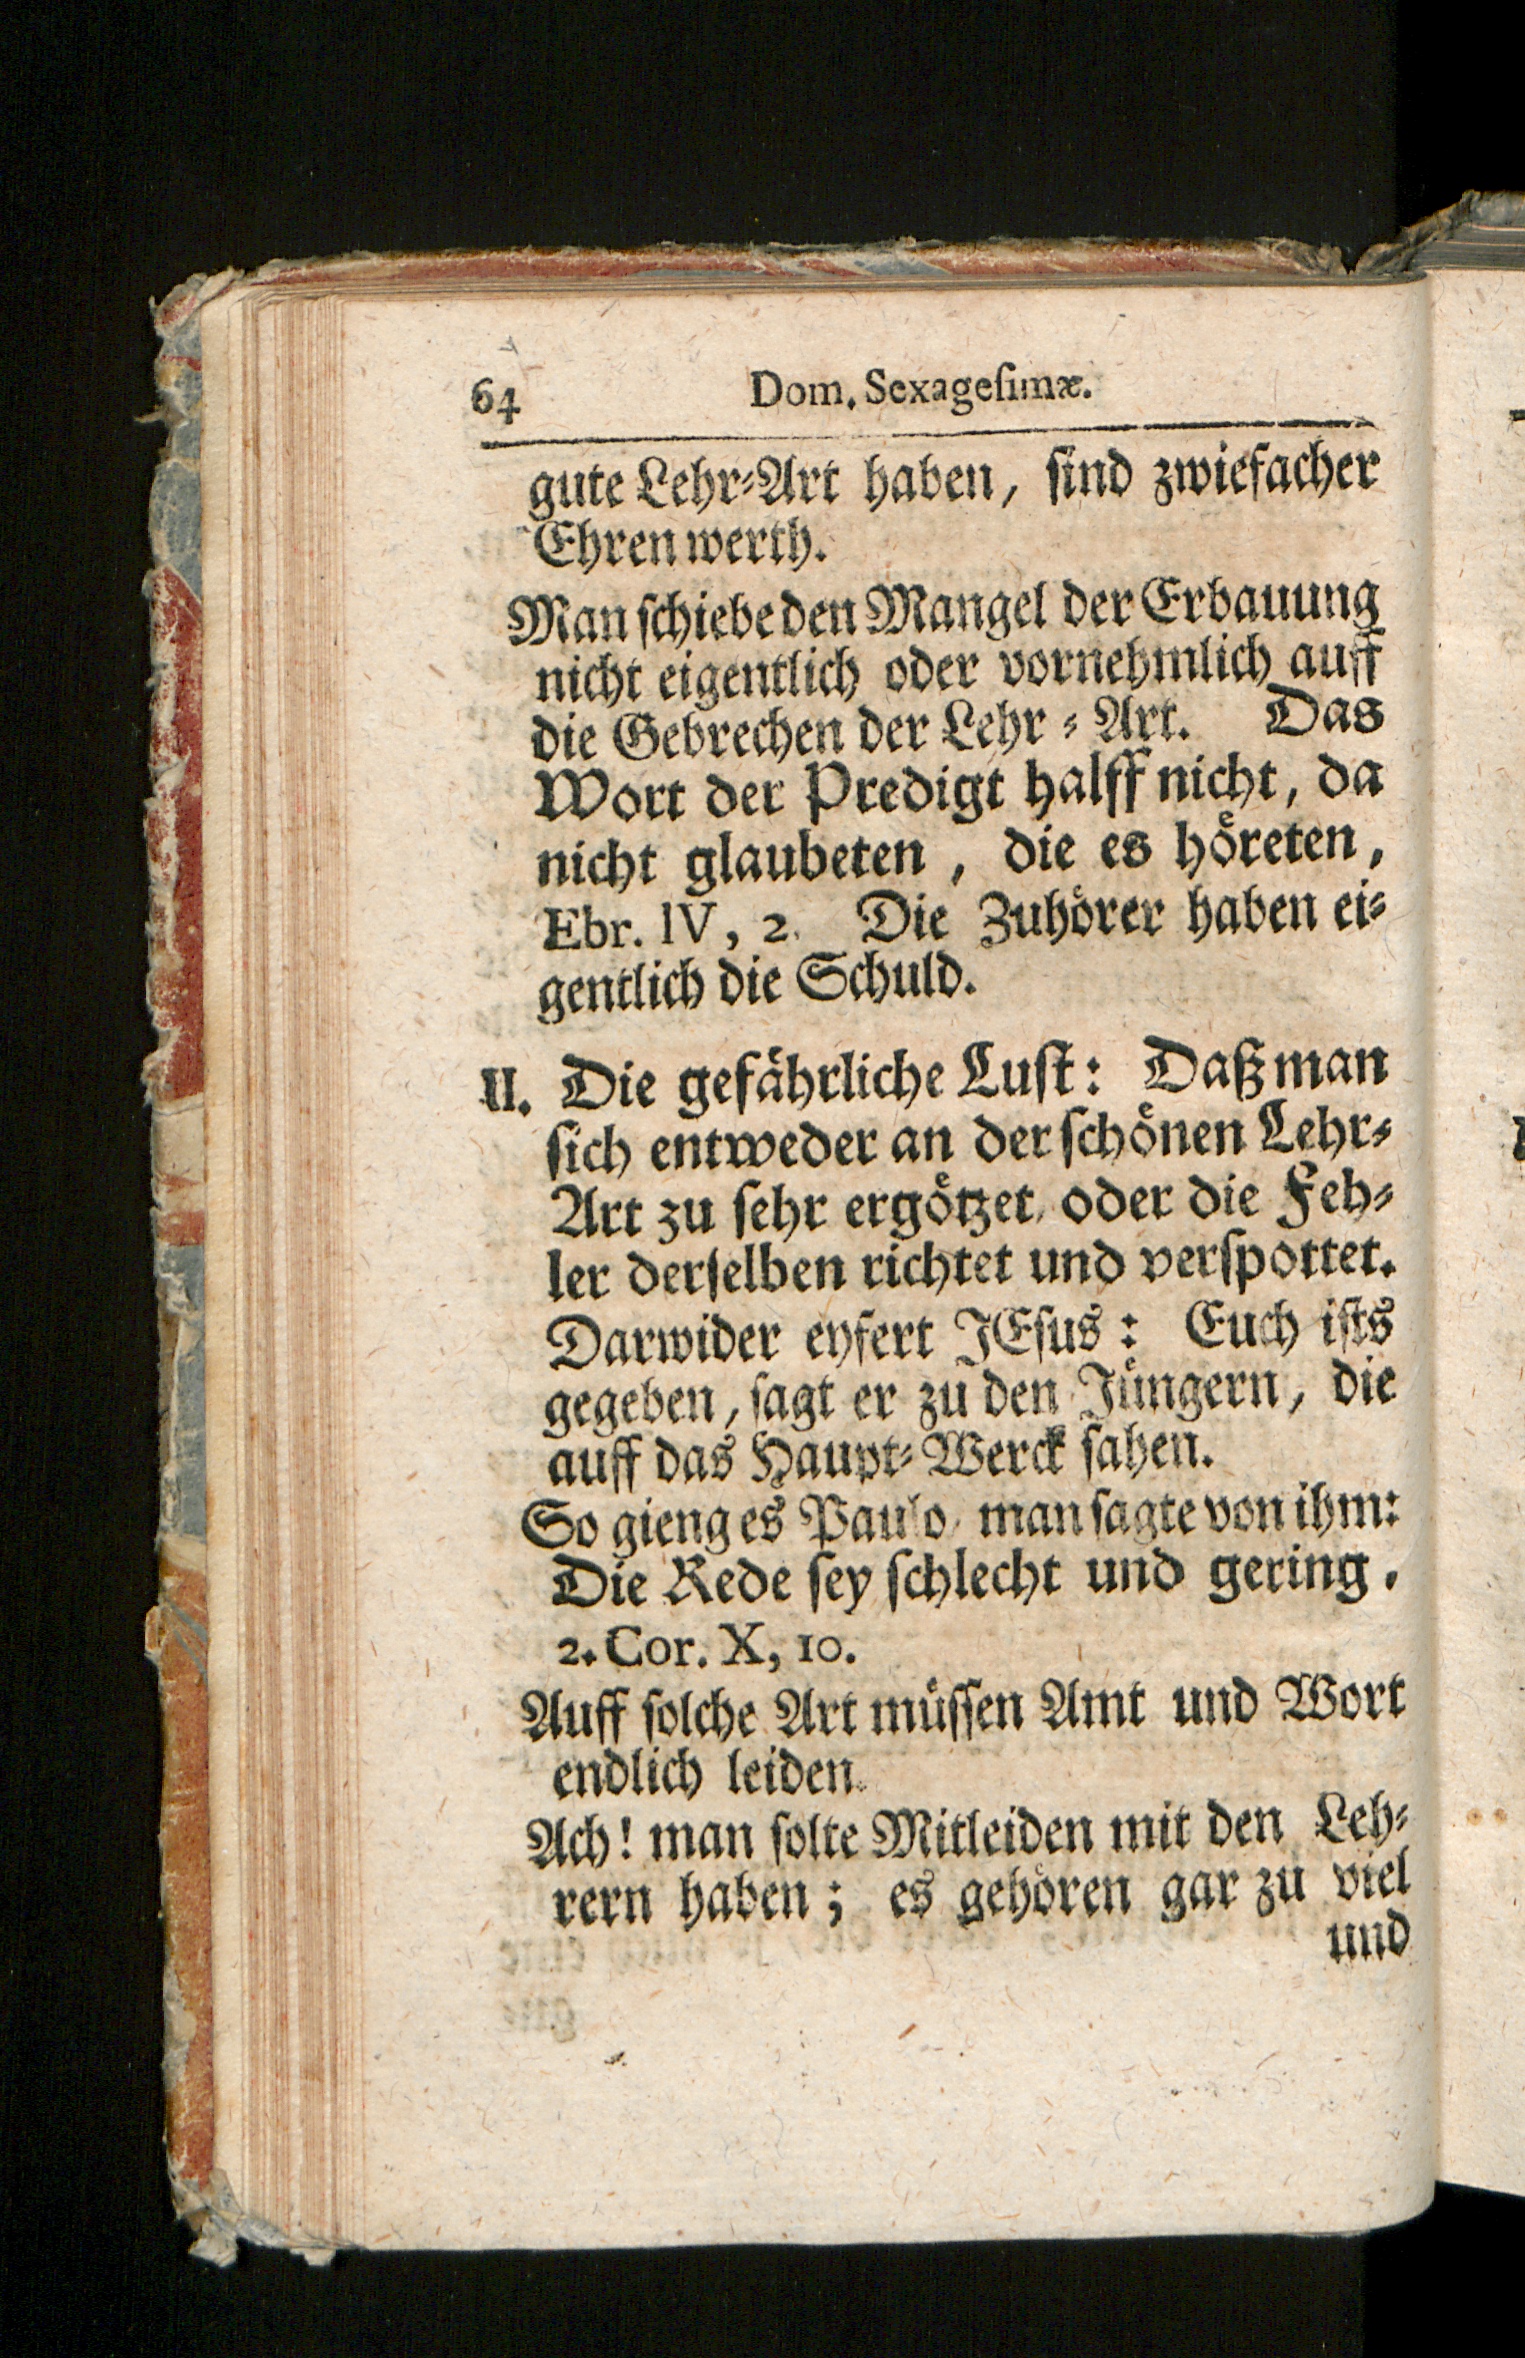 64 Dom. Sexageſimæ.
gute Lehr-Art haben, ſind zwiefacher
Ehren werth.
Man ſchiebe den Mangel der Erbauung
nicht eigentlich oder vornehmlich auff
die Gebrechen der Lehr-Art. Das
Wort der Predigt halff nicht, da
nicht glaubeten, die es höreten,
Ebr. IV, 2. Die Zuhörer haben ei-
gentlich die Schuld.
II. Die gefährliche Luſt: Daß man
ſich entweder an der ſchönen Lehr-
Art zu ſehr ergötzet, oder die Feh-
ler derſelben richtet und verſpottet.
Darwider eyfert JEſus: Euch iſts
gegeben, ſagt er zu den Jüngern, die
auff das Haupt-Werck ſahen.
So gieng es Paulo, man ſagte von ihm:
Die Rede ſey ſchlecht und gering.
2. Cor. X, 10.
Auff ſolche Art müſſen Amt und Wort
endlich leiden.
Ach! man ſolte Mitleiden mit den Leh-
rern haben; es gehören gar zu viel
und